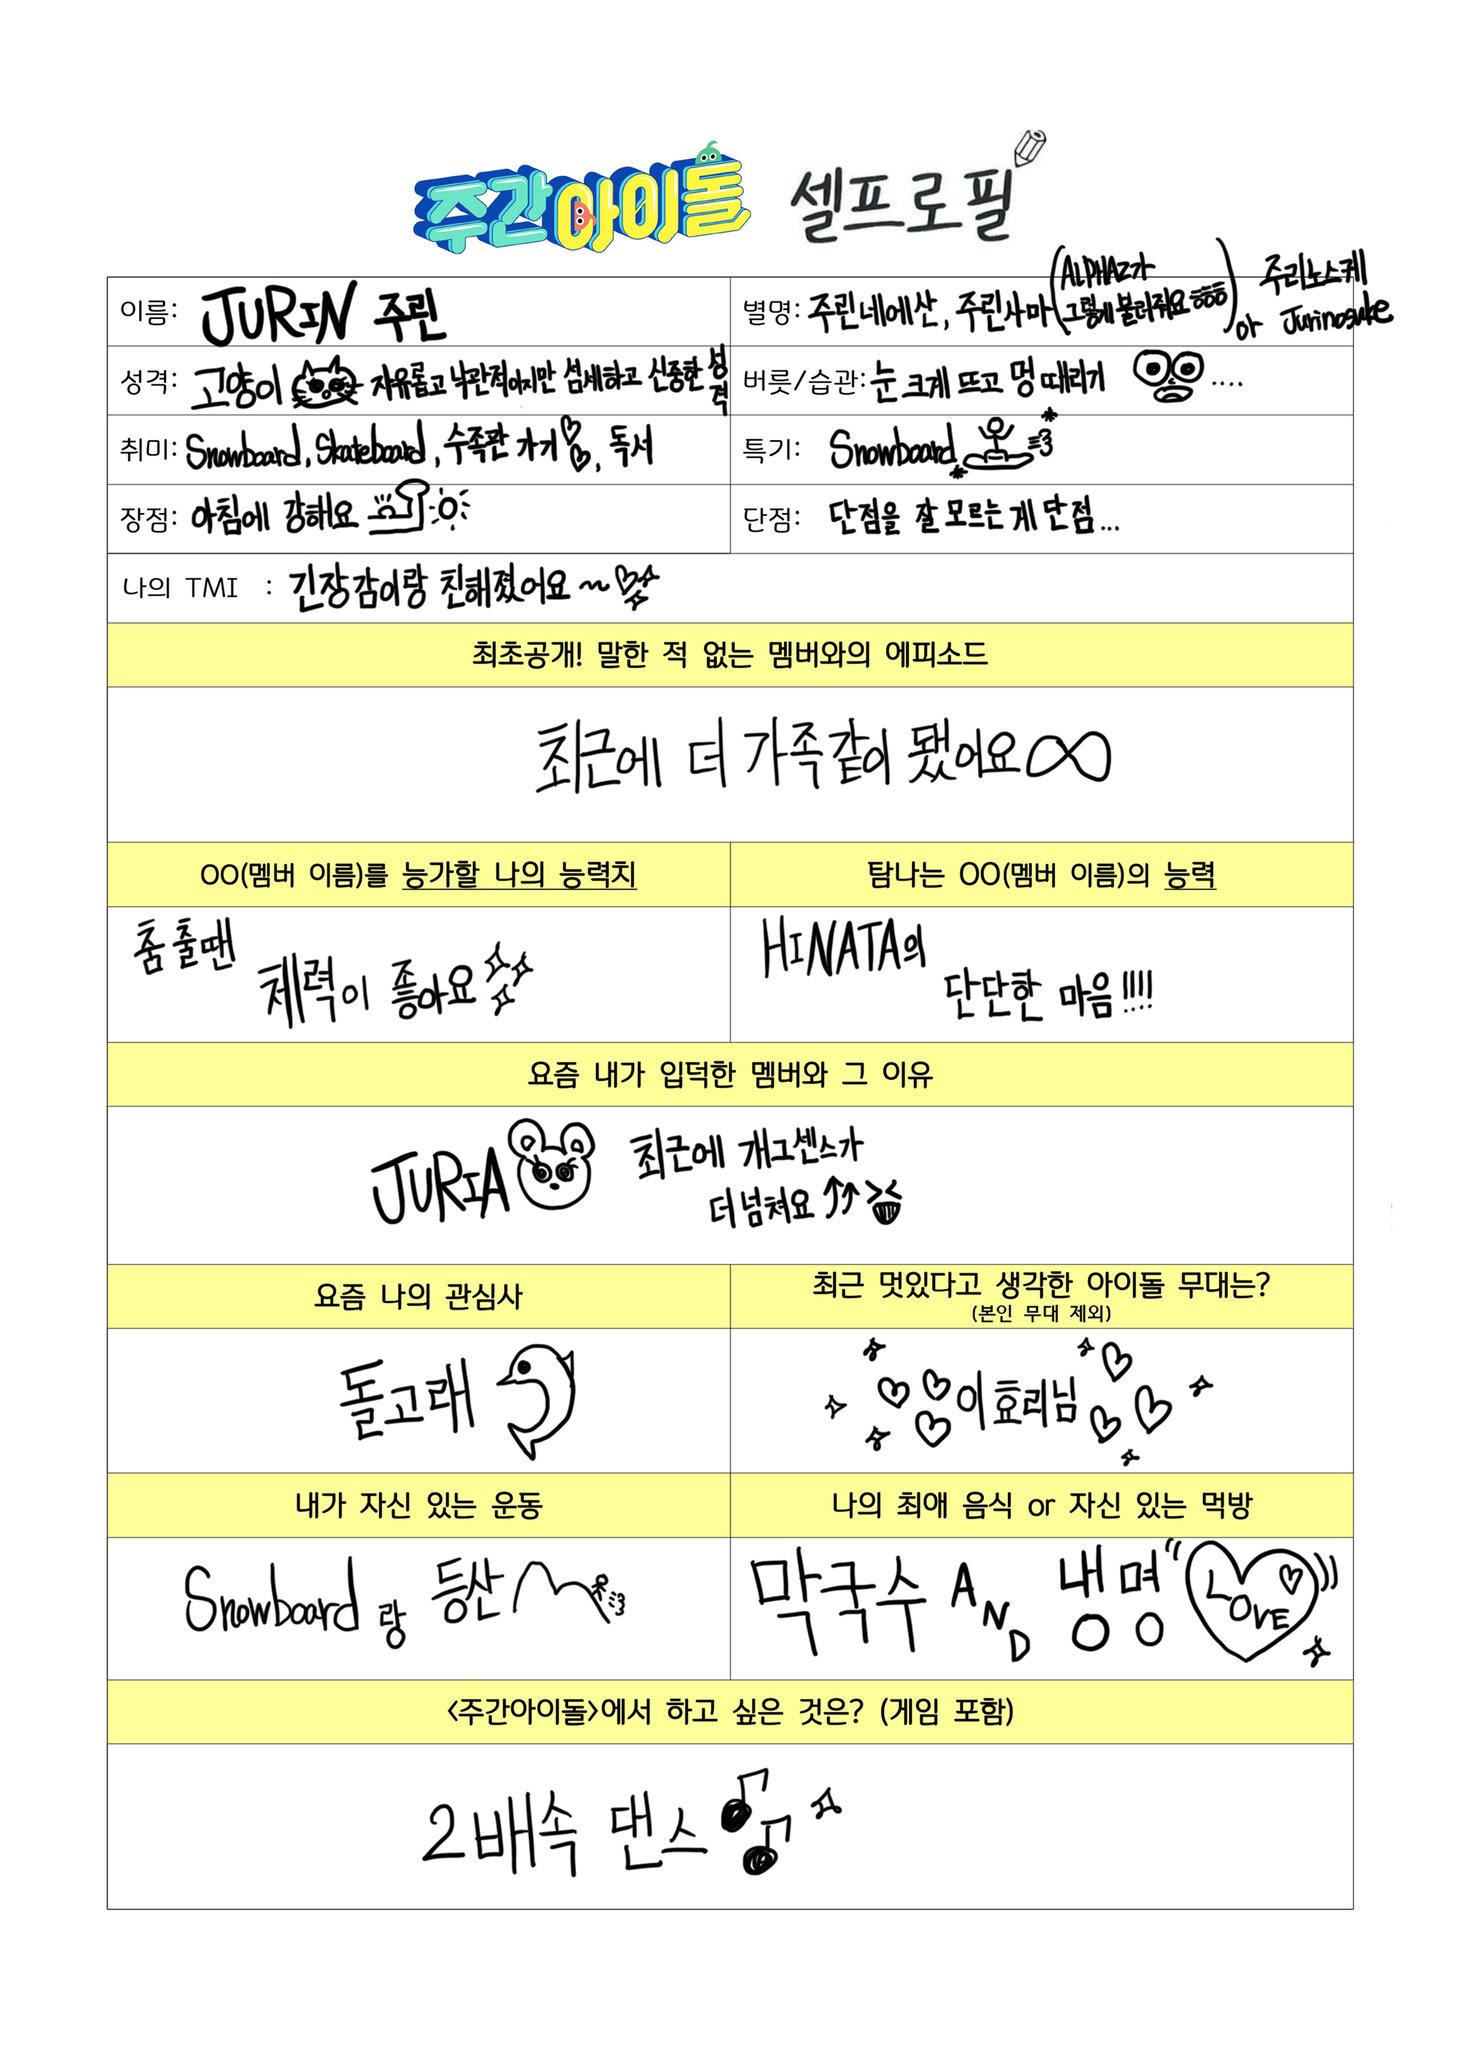 주간아이돌 셀프로필
이름: JURIN 주린
별명: 주린네에산, 주린사마 (ALPHAZ가 그렇게 불러줘요 ㅎㅎㅎ) 주리노스케
아 Jurinosuke
성격: 고양이 자유롭고 낙관적이지만 섬세하고 신중한 성격
버릇/습관: 눈 크게 뜨고 멍 때리기 ....
취미: Snowboard, Skateboard, 수족관 가기, 독서
특기: Snowboard
장점: 아침에 강해요
단점: 단점을 잘 모르는 게 단점...
나의 TMI : 긴장감이랑 친해졌어요~
최초공개! 말한 적 없는 멤버와의 에피소드
최근에 더 가족같이 됐어요∞
OO(멤버 이름)를 능가할 나의 능력치
춤 출땐
체력이 좋아요
탐나는 OO(멤버 이름)의 능력
HINATA의
단단한 마음!!!!
요즘 내가 입덕한 멤버와 그 이유
JURIA 최근에 개그센스가
더 넘쳐요↑↑
요즘 나의 관심사
돌고래
최근 멋있다고 생각한 아이돌 무대는?
(본인 무대 제외)
이효리님
내가 자신 있는 운동
Snowboard랑 등산
나의 최애 음식 or 자신 있는 먹방
막국수 AND 냉명 LOVE
<주간아이돌>에서 하고 싶은 것은? (게임 포함)
2배속 댄스